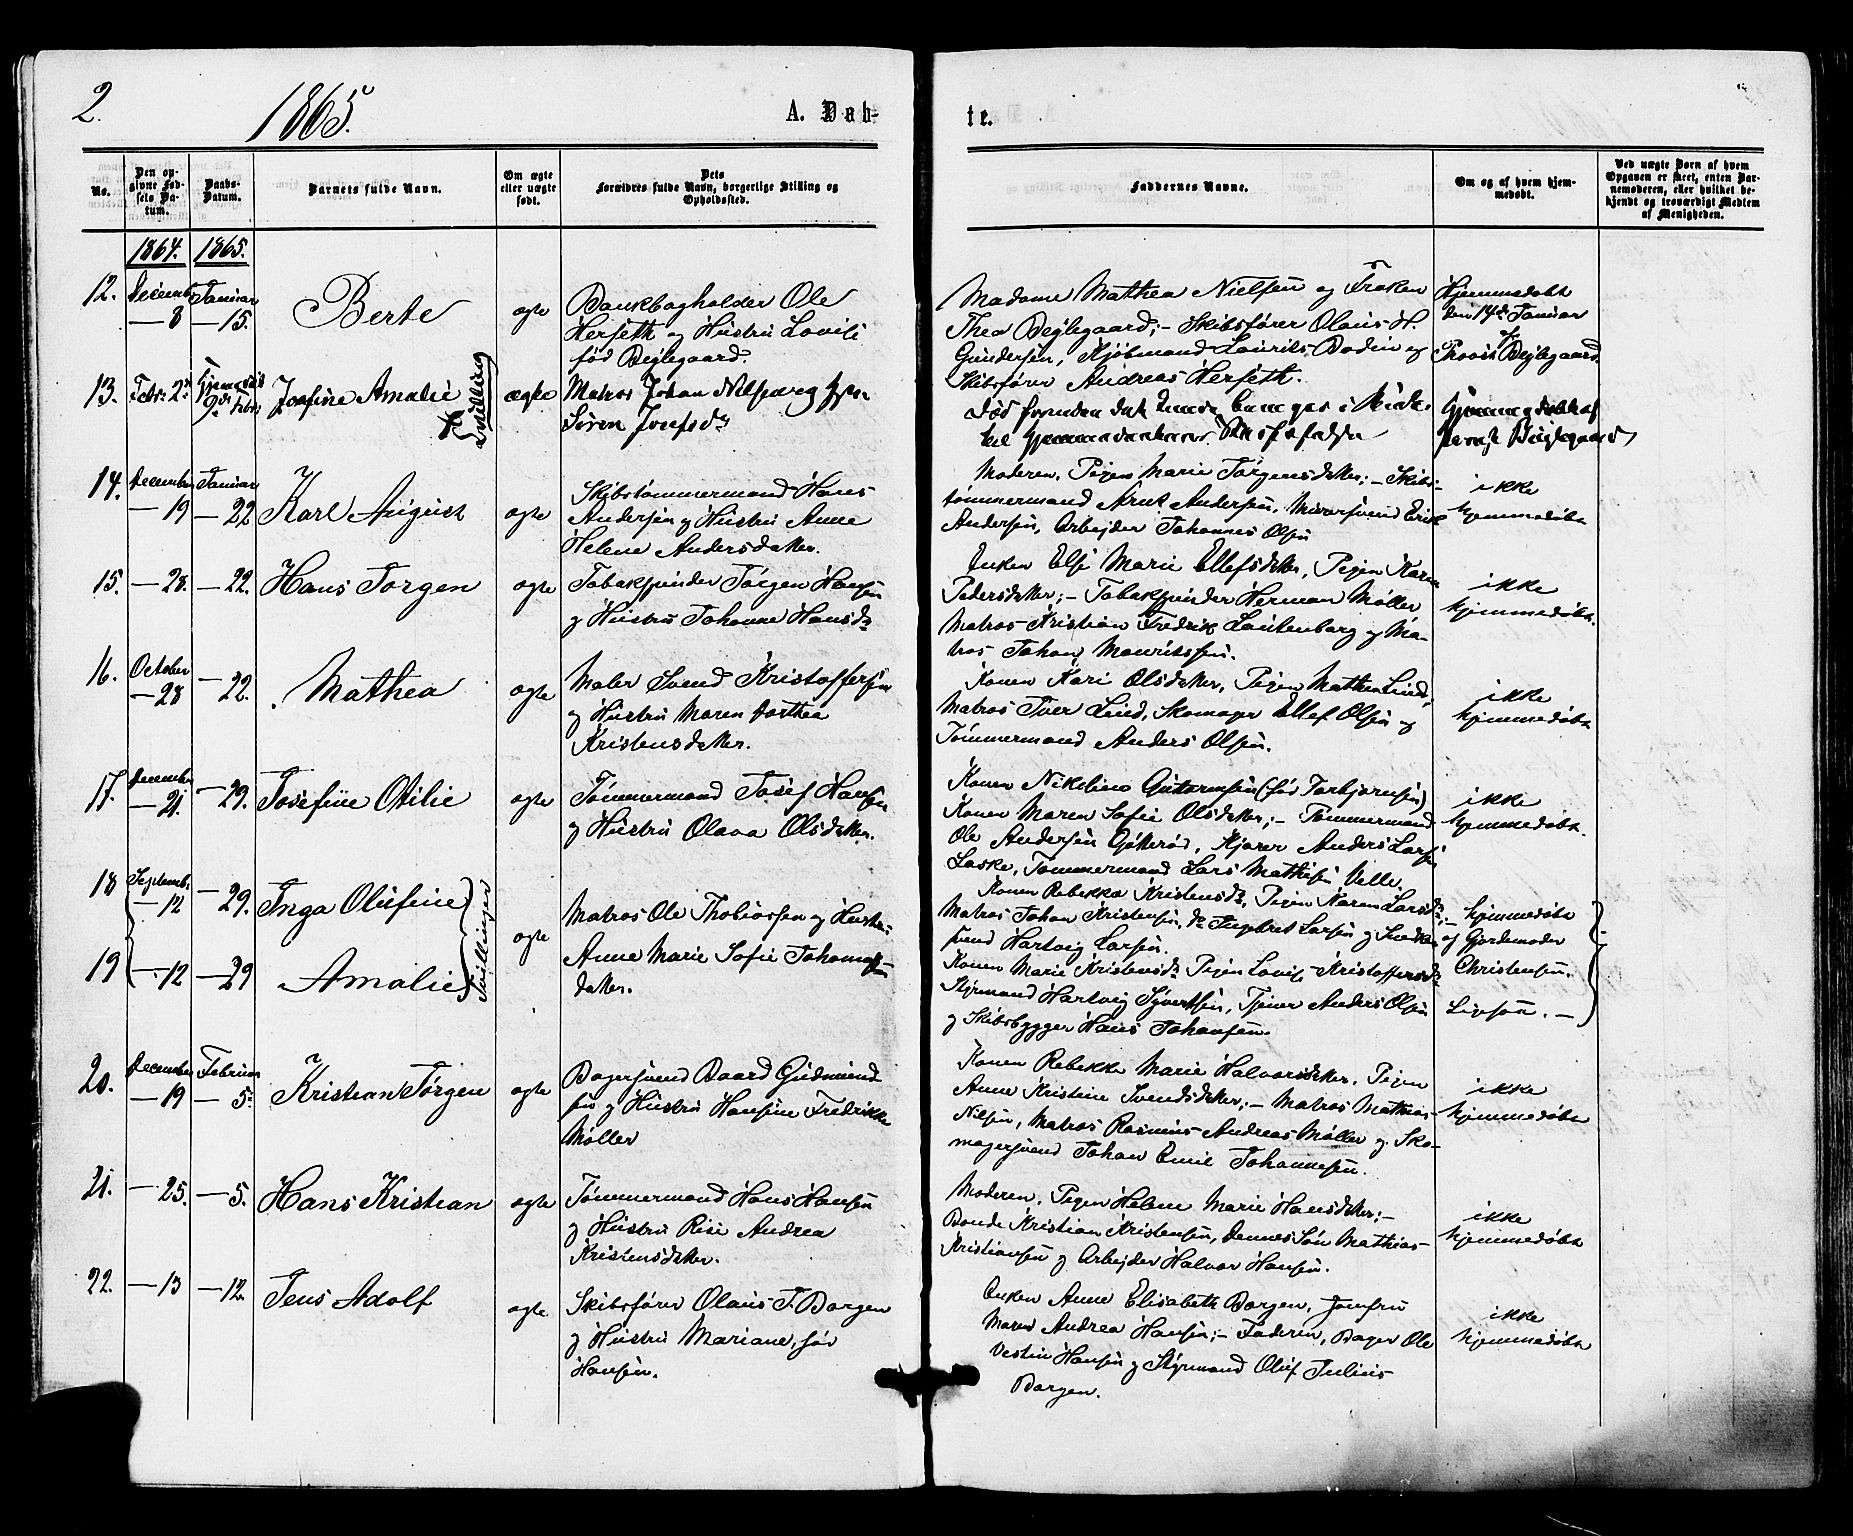 2.
1865.
A. Døb-
te.
No.
Den op-
givne Fød-
sels Da-
tum.
Daabs-
Datum.
Barnets fulde Navn.
Om ægte
eller uægte
født.
Dets
Forældres fulde Navn, borgerlige Stilling og
Opholdssted.
Faddernes Navne.
Om og af hvem hjem-
medøbt.
Ved uægte Børn af hvem
Opgaven er skeet, enten Bar-
nemoderen, eller hvilket be-
kjendt og troværdigt Medlem
af Menigheden.
1864. 1865.
12. Decembr Januar
— 8 — 15.
Berte
ægte
Bankbogholder Ole
Herseth og Hustru Lovise
fød Bejlegaard.
Madame Mathea Nielsen og Frøken
Thea Bejlegaard; - Skibsfører Olaus H.
Gundersen, Kjøbmand Laurits Bodin og
Skibsfører Andreas Herseth.
Hjemmedøbt
den 14de Januar
af
Provst Bejlegaard.
13. Febr: 2den
9de Febr:
Josefine Amalie
Tvilling
ægte
Matros Johan Nilsen og Hustru
Søren Josefsdr
Død forinden
Provst Bejlegaard
14. December Januar
— 19 — 22
Karl August
ægte
Skibstømmermand Hans
Andersen og Hustru Anne
Helene Andersdatter.
Moderen, Pigen Marie Jørgensdatter; - Skibs-
tømmermand Arnt Andersen, Murersvend Erik
Andersen, Arbejder Johannes Olsen
ikke
hjemmedøbt
15. — 28. — 22.
Hans Jørgen
ægte
Tobakspinder Jørgen Hansen
og Hustru Johanne Hansdr
Enken Else Marie Ellefsdatter, Pigen Karen
Pedersdatter; - Tobakspinder Herman Møller
Matros Kristian Fredrik Lautenborg og Ma-
tros Johan Mauritssen.
ikke
hjemmedøbt.
16. October
— 28 — 22.
Mathea
ægte
Maler Svend Kristoffersen
og Hustru Maren Dorthea
Kristensdatter.
Konen Kari Olsdatter, Pigen Mathea Lind,
Matros Iver Lind, Skomager Ellef Olsen og
Tømmermand Anders Olsen.
ikke
hjemmedøbt
17. December
— 21. — 29.
Josefine Otilie
ægte
Tømmermand Josef Hansen
og Hustru Olava Olsdatter.
Konen Nikoline Gutormsen (fød Torbjørnsen)
Konen Maren Sofie Olsdatter; - Tømmermand
Ole Andersen Gjøkerød, Kjører Anders Larsen
Laske, Tømmermand Lars Mathisen Velle.
ikke
hjemmedøbt.
18 Septembr
— 12 — 29.
Inga Olufine
19 — 12 — 29
Amalie
Tvillinger
ægte
Matros Ole Thobiassen og Hustru
Anne Marie Sofie Johannes-
datter.
Konen Rebekka Kristensdr, Pigen Karen Larsdr; -
Matros Johan Kristensen, do Ingebret Larsen og Snedker
svend Hartvig Larsen.
Konen Marie Kristensdr Pigen Lovise Kristoffersdr
Styrmand Hartvig Syvertsen, Tjener Anders Olsen
og Skibsbygger Hans Johansen.
hjemmedøbt
af Gjordemoder
Christensen.
20. December Februar
— 19 — 5.
Kristian Jørgen
ægte
Bagersvend Baard Gudmund
sen og Hustru Hansine Fredrikke
Møller
Konen Rebekka Marie Halvorsdatter, Pigen
Anne Kristine Svendsdatter; - Matros Mathias
Nilsen, Matros Rasmus Andreas Møller og Sko-
magersvend Johan Emil Johannesen.
ikke
hjemmedøbt
21. — 25. — 5.
Hans Kristian
ægte
Tømmermand Hans Hansen
og Hustru Risi Andrea
Kristensdatter.
Moderen, Pigen Helene Marie Hansdatter; -
Bonde Kristian Kristensen, dennes Søn Mathias
Kristiansen og Arbejder Halvor Hansen.
ikke
hjemmedøbt
22. — 13 — 12.
Jens Adolf
ægte
Skibsfører Olaus T. Borgen
og Hustru Mariane, fød
Hansen.
Enken Anne Elisabeth Borgen, Jomfru
Maren Andrea Hansen; - Faderen, Bager Ole
Vestin Hansen og Styrmand Oluf Julius
Borgen.
ikke
hjemmedøbt